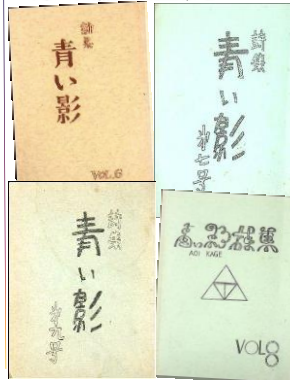 詩集
青い影
VOL.6
詩集
青い影
第七号
詩集
青い影
第九号
青い影詩集
AOI KAGE
VOL8